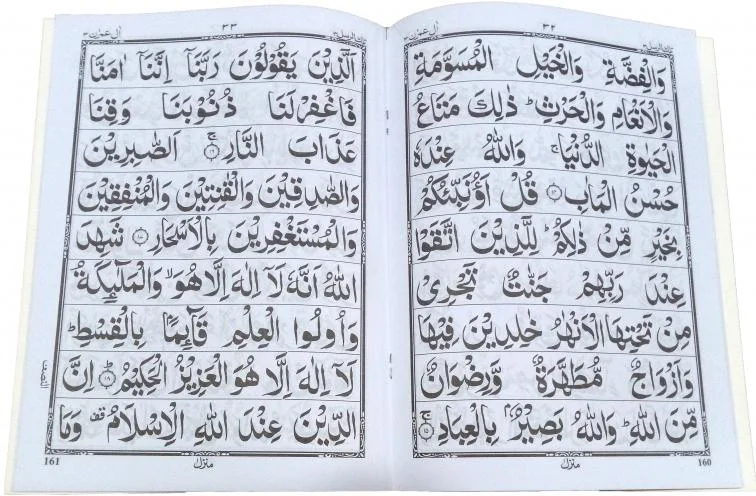 اٰل عمرٰن ٣
٣٢
وَالْفِضَّةِ وَالْخَيْلِ الْمُسَوَّمَةِ
وَالْاَنْعَامِ وَالْحَرْثِ ؕ ذٰلِكَ مَتَاعُ
الْحَيٰوةِ الدُّنْيَا ۚ وَاللّٰهُ عِنْدَهٗ
حُسْنُ الْمَاٰبِ ۝۱۴ قُلْ اَؤُنَبِّئُكُمْ
بِخَيْرٍ مِّنْ ذٰلِكُمْ ؕ لِلَّذِيْنَ اتَّقَوْا
عِنْدَ رَبِّهِمْ جَنّٰتٌ تَجْرِيْ
مِنْ تَحْتِهَا الْاَنْهٰرُ خٰلِدِيْنَ فِيْهَا
وَاَزْوَاجٌ مُّطَهَّرَةٌ وَّرِضْوَانٌ
مِّنَ اللّٰهِ ؕ وَاللّٰهُ بَصِيْرٌۢ بِالْعِبَادِ ۝۱۵ۚ
منزل
160
اٰل عمرٰن ٣
٣٣
اَلَّذِيْنَ يَقُوْلُوْنَ رَبَّنَاۤ اِنَّنَاۤ اٰمَنَّا
فَاغْفِرْ لَنَا ذُنُوْبَنَا وَقِنَا
عَذَابَ النَّارِ ۝۱۶ۚ اَلصّٰبِرِيْنَ
وَالصّٰدِقِيْنَ وَالْقٰنِتِيْنَ وَالْمُنْفِقِيْنَ
وَالْمُسْتَغْفِرِيْنَ بِالْاَسْحَارِ ۝۱۷ شَهِدَ
اللّٰهُ اَنَّهٗ لَاۤ اِلٰهَ اِلَّا هُوَ ۙ وَالْمَلٰٓئِكَةُ
وَاُولُوا الْعِلْمِ قَآئِمًۢا بِالْقِسْطِ ؕ
لَاۤ اِلٰهَ اِلَّا هُوَ الْعَزِيْزُ الْحَكِيْمُ ۝۱۸ؕ اِنَّ
الدِّيْنَ عِنْدَ اللّٰهِ الْاِسْلَامُ ۫ وَمَا
منزل
161